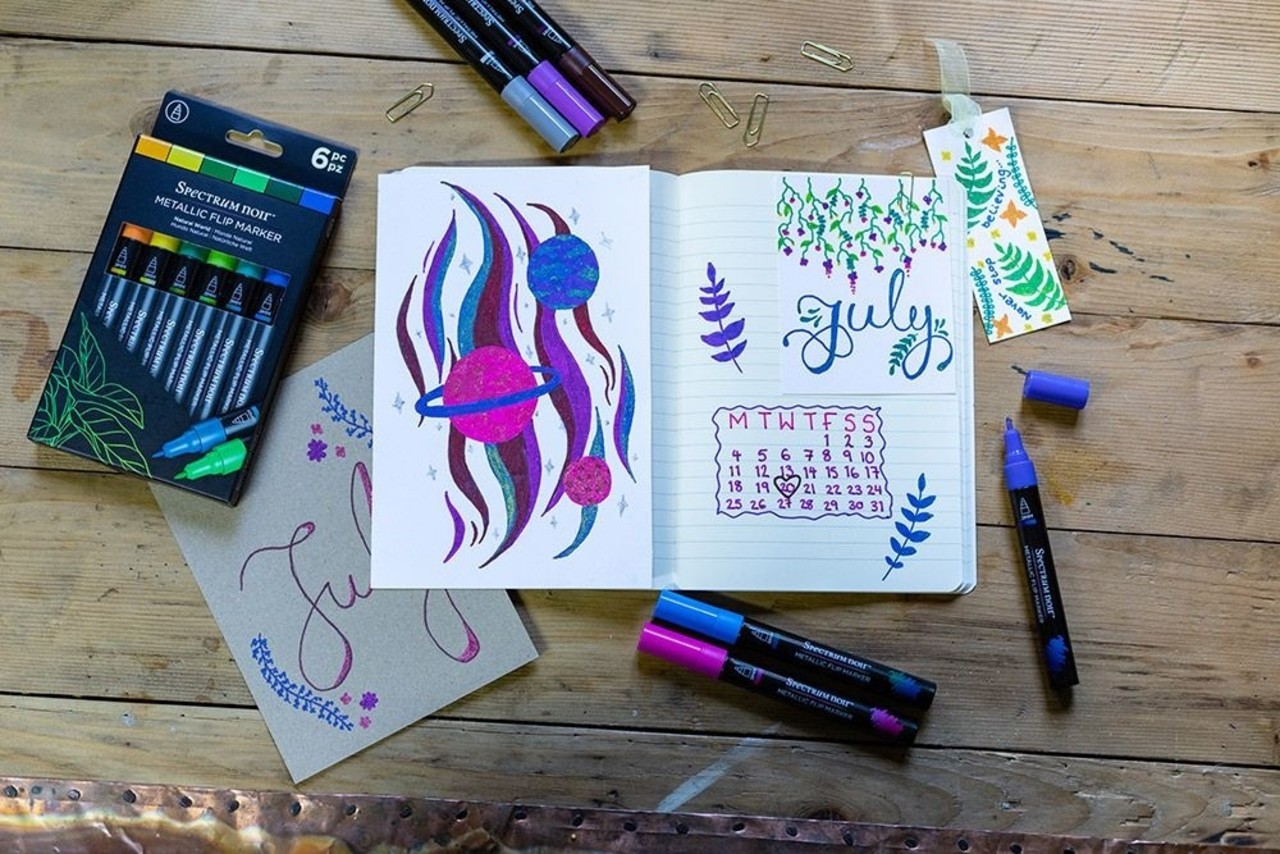 6 pc
pz
SPECTRUM NOIR™
METALLIC FLIP MARKER
Natural World : Monde Naturel
Mondo Natural : Natürliche Welt
July
M T W T F S S
1 2 3
4 5 6 7 8 9 10
11 12 13 14 15 16 17
18 19 20 21 22 23 24
25 26 27 28 29 30 31
never stop
believing...
Jul
SPECTRUM NOIR™
METALLIC FLIP MARKER
SPECTRUM NOIR™
METALLIC FLIP MARKER
SPECTRUM NOIR™
METALLIC FLIP MARKER